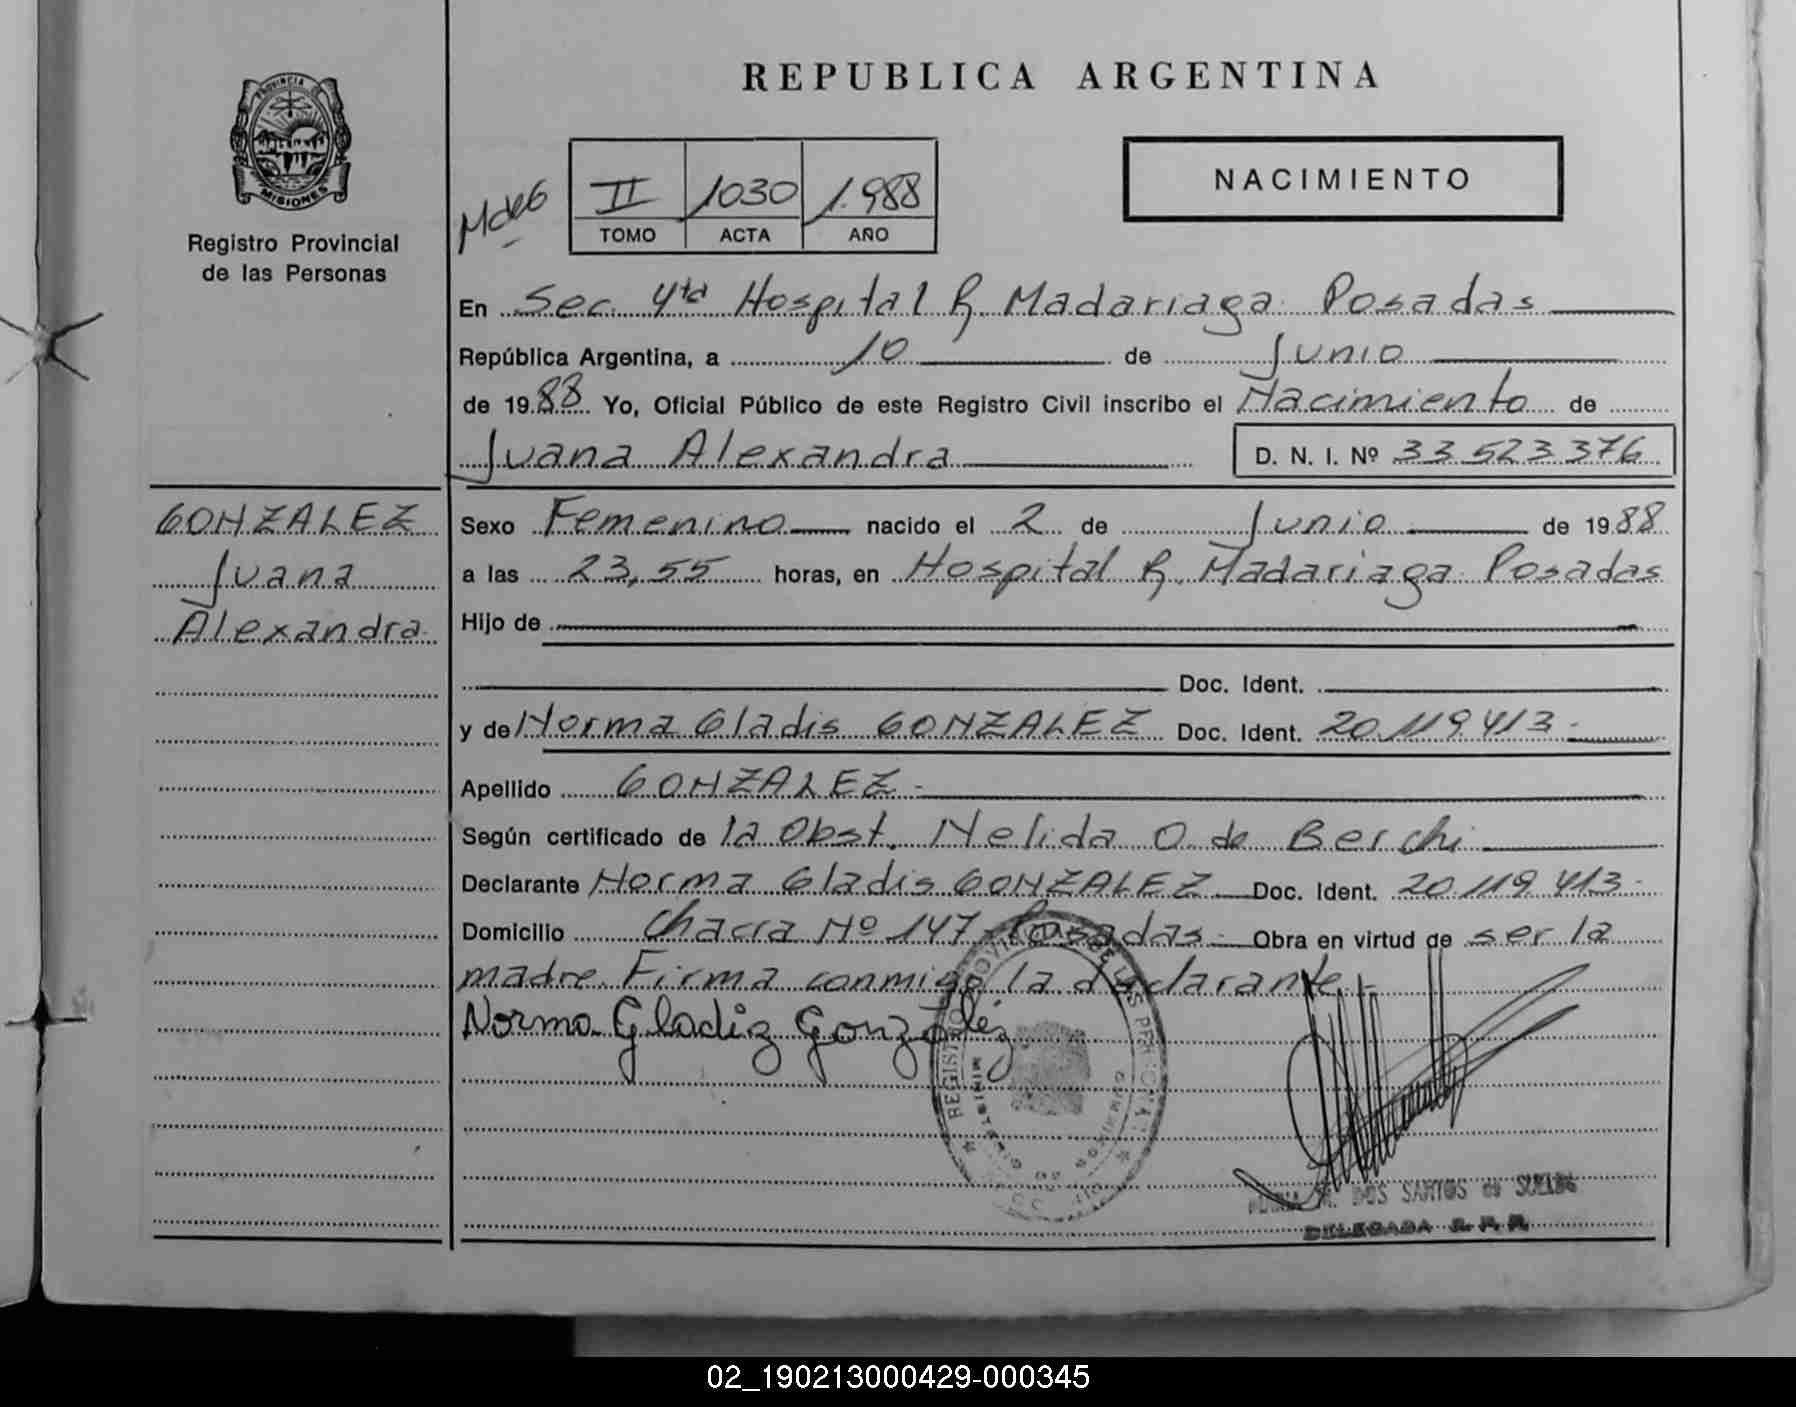 REPUBLICA ARGENTINA
PROVINCIA DE
MISIONES
Registro Provincial
de las Personas
II 1030 1.988
TOMO ACTA AÑO
NACIMIENTO
En Sec. 4ta Hospital R. Madariaga Posadas
República Argentina, a 10 de Junio
de 1988 Yo, Oficial Público de este Registro Civil inscribo el Nacimiento de
Juana Alexandra D. N. I. Nº 33 523 376
GONZALEZ
Juana
Alexandra
Sexo Femenino nacido el 2 de Junio de 1988
a las 23,55 horas, en Hospital R. Madariaga Posadas
Hijo de
Doc. Ident.
y de Norma Gladis GONZALEZ Doc. Ident. 20.119.413-
Apellido GONZALEZ-
Según certificado de la Obst. Nelida O. de Berchi
Declarante Norma Gladis GONZALEZ Doc. Ident. 20.119.413-
Domicilio Chacra Nº 147 - Posadas- Obra en virtud de ser la
madre. Firma conmigo la declarante-
Norma Gladiz González
REGISTRO PROVINCIAL DE LAS PERSONAS
MINISTERIO DE GOBIERNO
DOS SANTOS de
DELEGADA R. P. P.
02_190213000429-000345